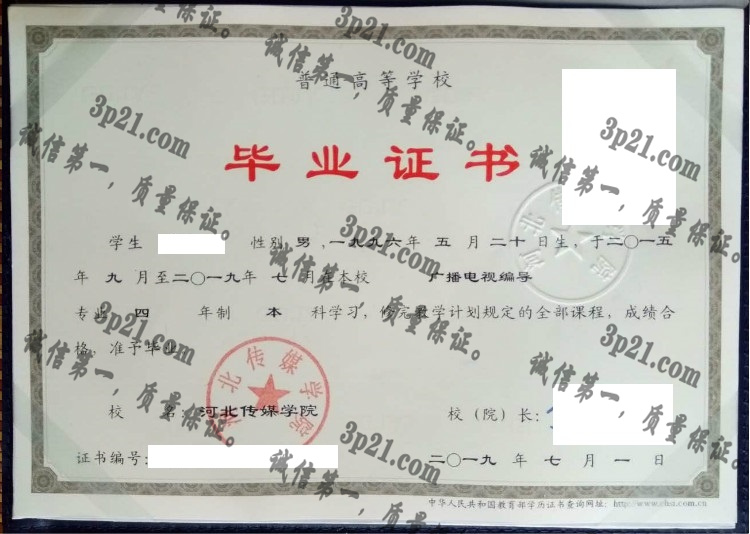 普通高等学校
毕业证书
学生 性别 男，一九九六年 五 月 二十 日生，于二〇一五
年 九 月至二〇一九年 七 月在本校 广播电视编导
专业 四 年制 本 科学习，修完教学计划规定的全部课程，成绩合
格，准予毕业。
校 名：河北传媒学院 校（院）长：
证书编号：
二〇一九 年 七 月 一 日
中华人民共和国教育部学历证书查询网址：http://www.chsi.com.cn
河北传媒学院
3p21.com
诚信第一，质量保证。
3p21.com
诚信第一，质量保证。
3p21.com
诚信第一，质量保证。
3p21.com
诚信第一，质量保证。
3p21.com
诚信第一，质量保证。
3p21.com
诚信第一，质量保证。
3p21.com
诚信第一，质量保证。